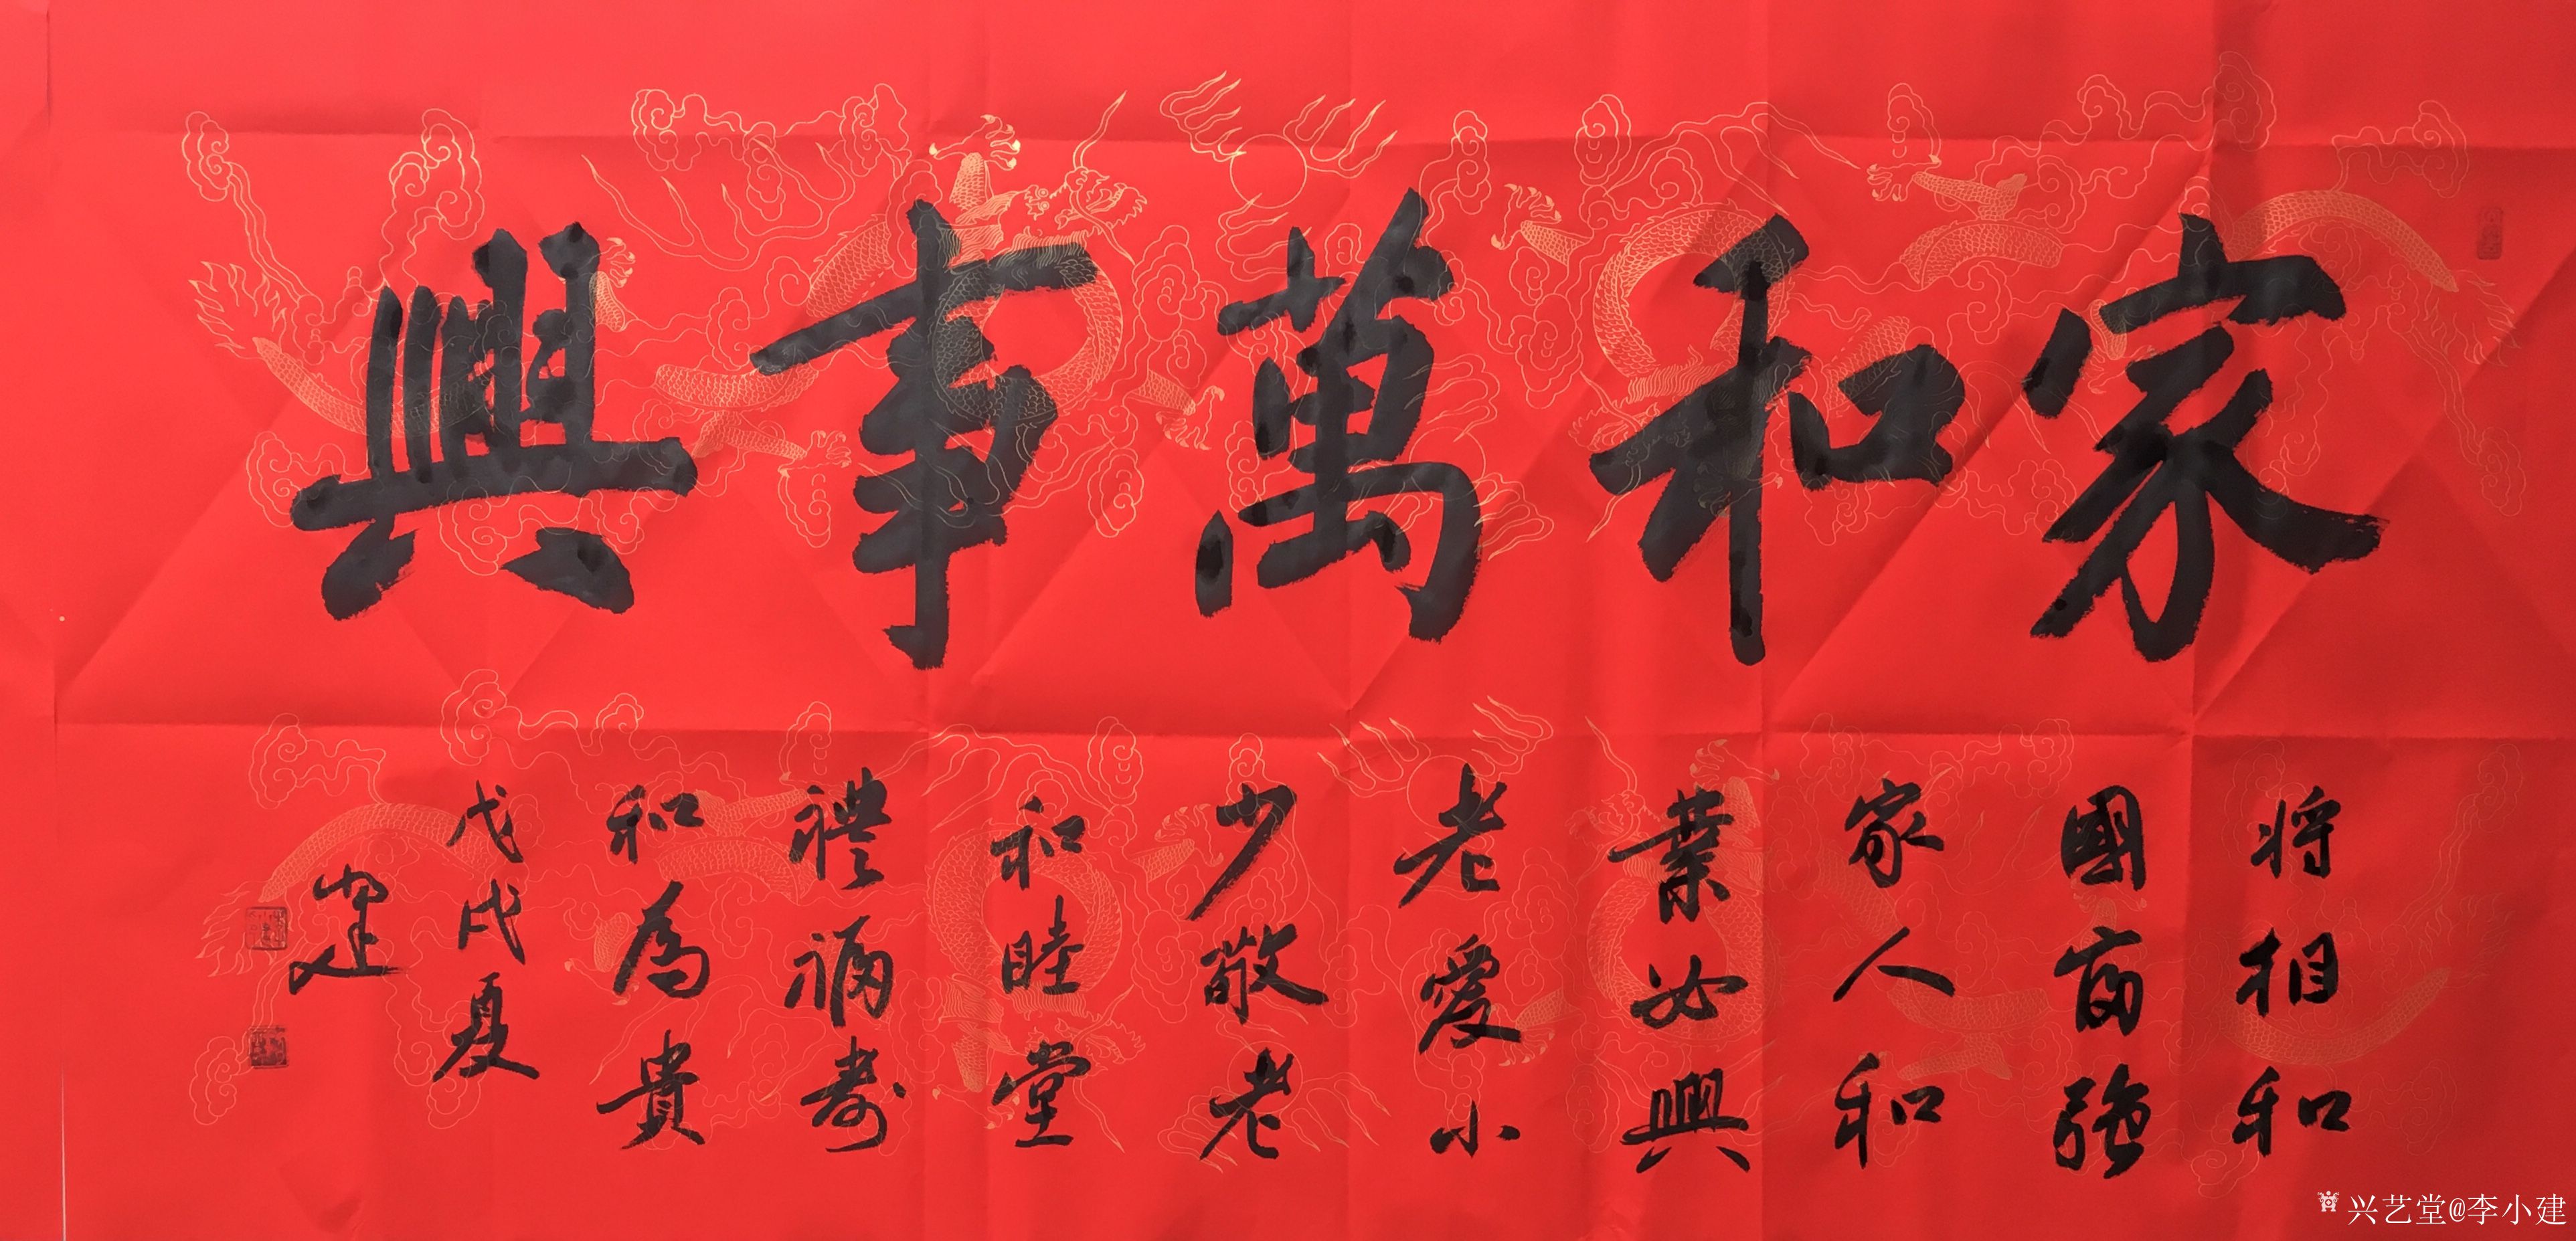 家和萬事興
将相和
國富強
家人和
業必興
老愛小
少敬老
和睦堂
禮福壽
和為貴
戊戌夏
小建
兴艺堂@李小建